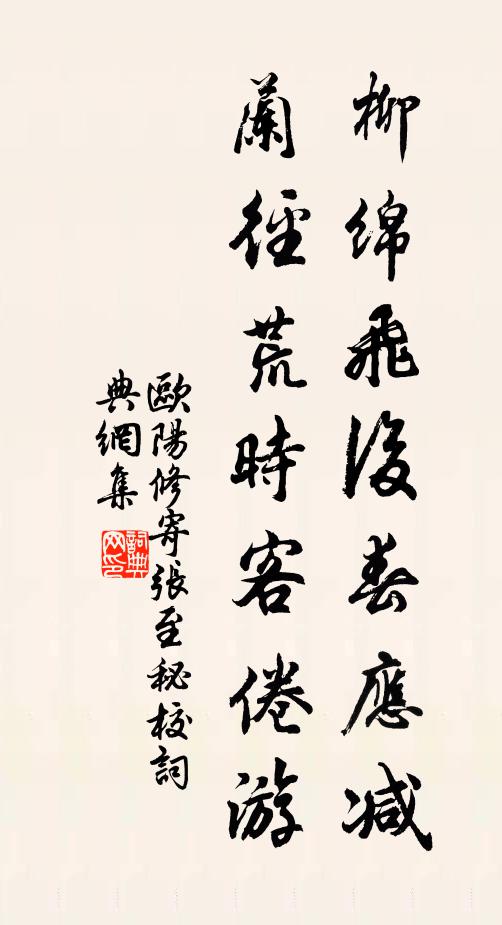 柳绵飛後春應减
蘭徑荒時客倦游
歐陽修寄張至秘校詞
典網集
詞典网印